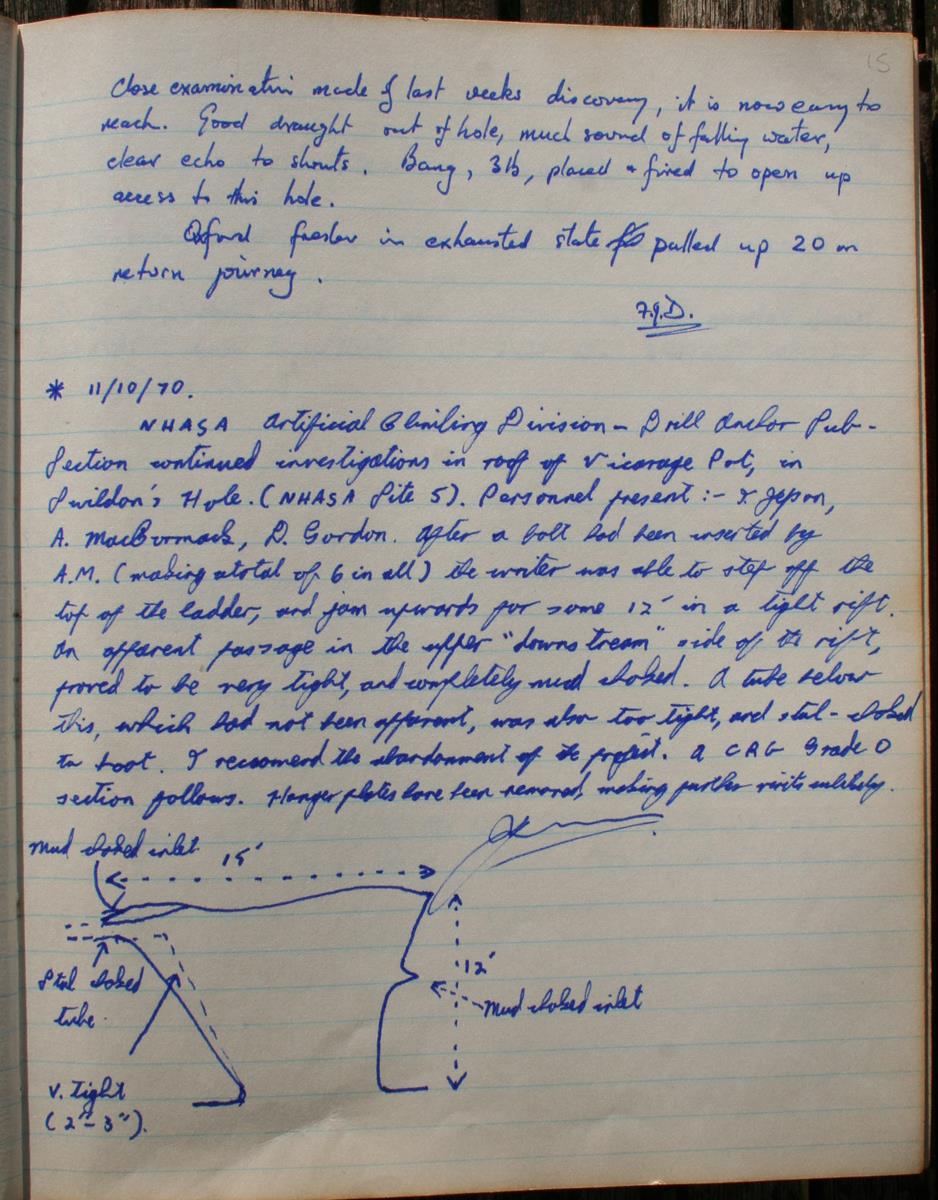 15
Close examination made of last weeks discovery, it is now easy to
reach. Good draught out of hole, much sound of falling water,
clear echo to shouts. Bang, 3lb, placed & fired to open up
access to this hole.
Oxford in exhausted state pulled up 20 on
return journey.
F.J.D.
* 11/10/70.
NHASA Artificial Climbing Division - Drill Anchor Sub-
Section continued investigations in roof of Vicarage Pot, in
Swildon's Hole. (NHASA Site 5). Personnel present :- Jepson,
A. MacCormack, D. Gordon. After a bolt had been inserted by
A.M. (making a total of 6 in all) the writer was able to step off the
top of the ladder, and jam upwards for some 12' in a tight rift.
An apparent passage in the upper "downstream" side of the rift,
proved to be very tight, and completely mud choked. A tube below
this, which had not been apparent, was also too tight, and stal-choked
to boot. I recomend the abandonment of the project. A CRG Grade 0
section follows. Hanger plates have been removed, making further visits unlikely.
Mud choked inlet
15'
12'
Stal choked
tube.
Mud choked inlet
V. tight
(2"-3").